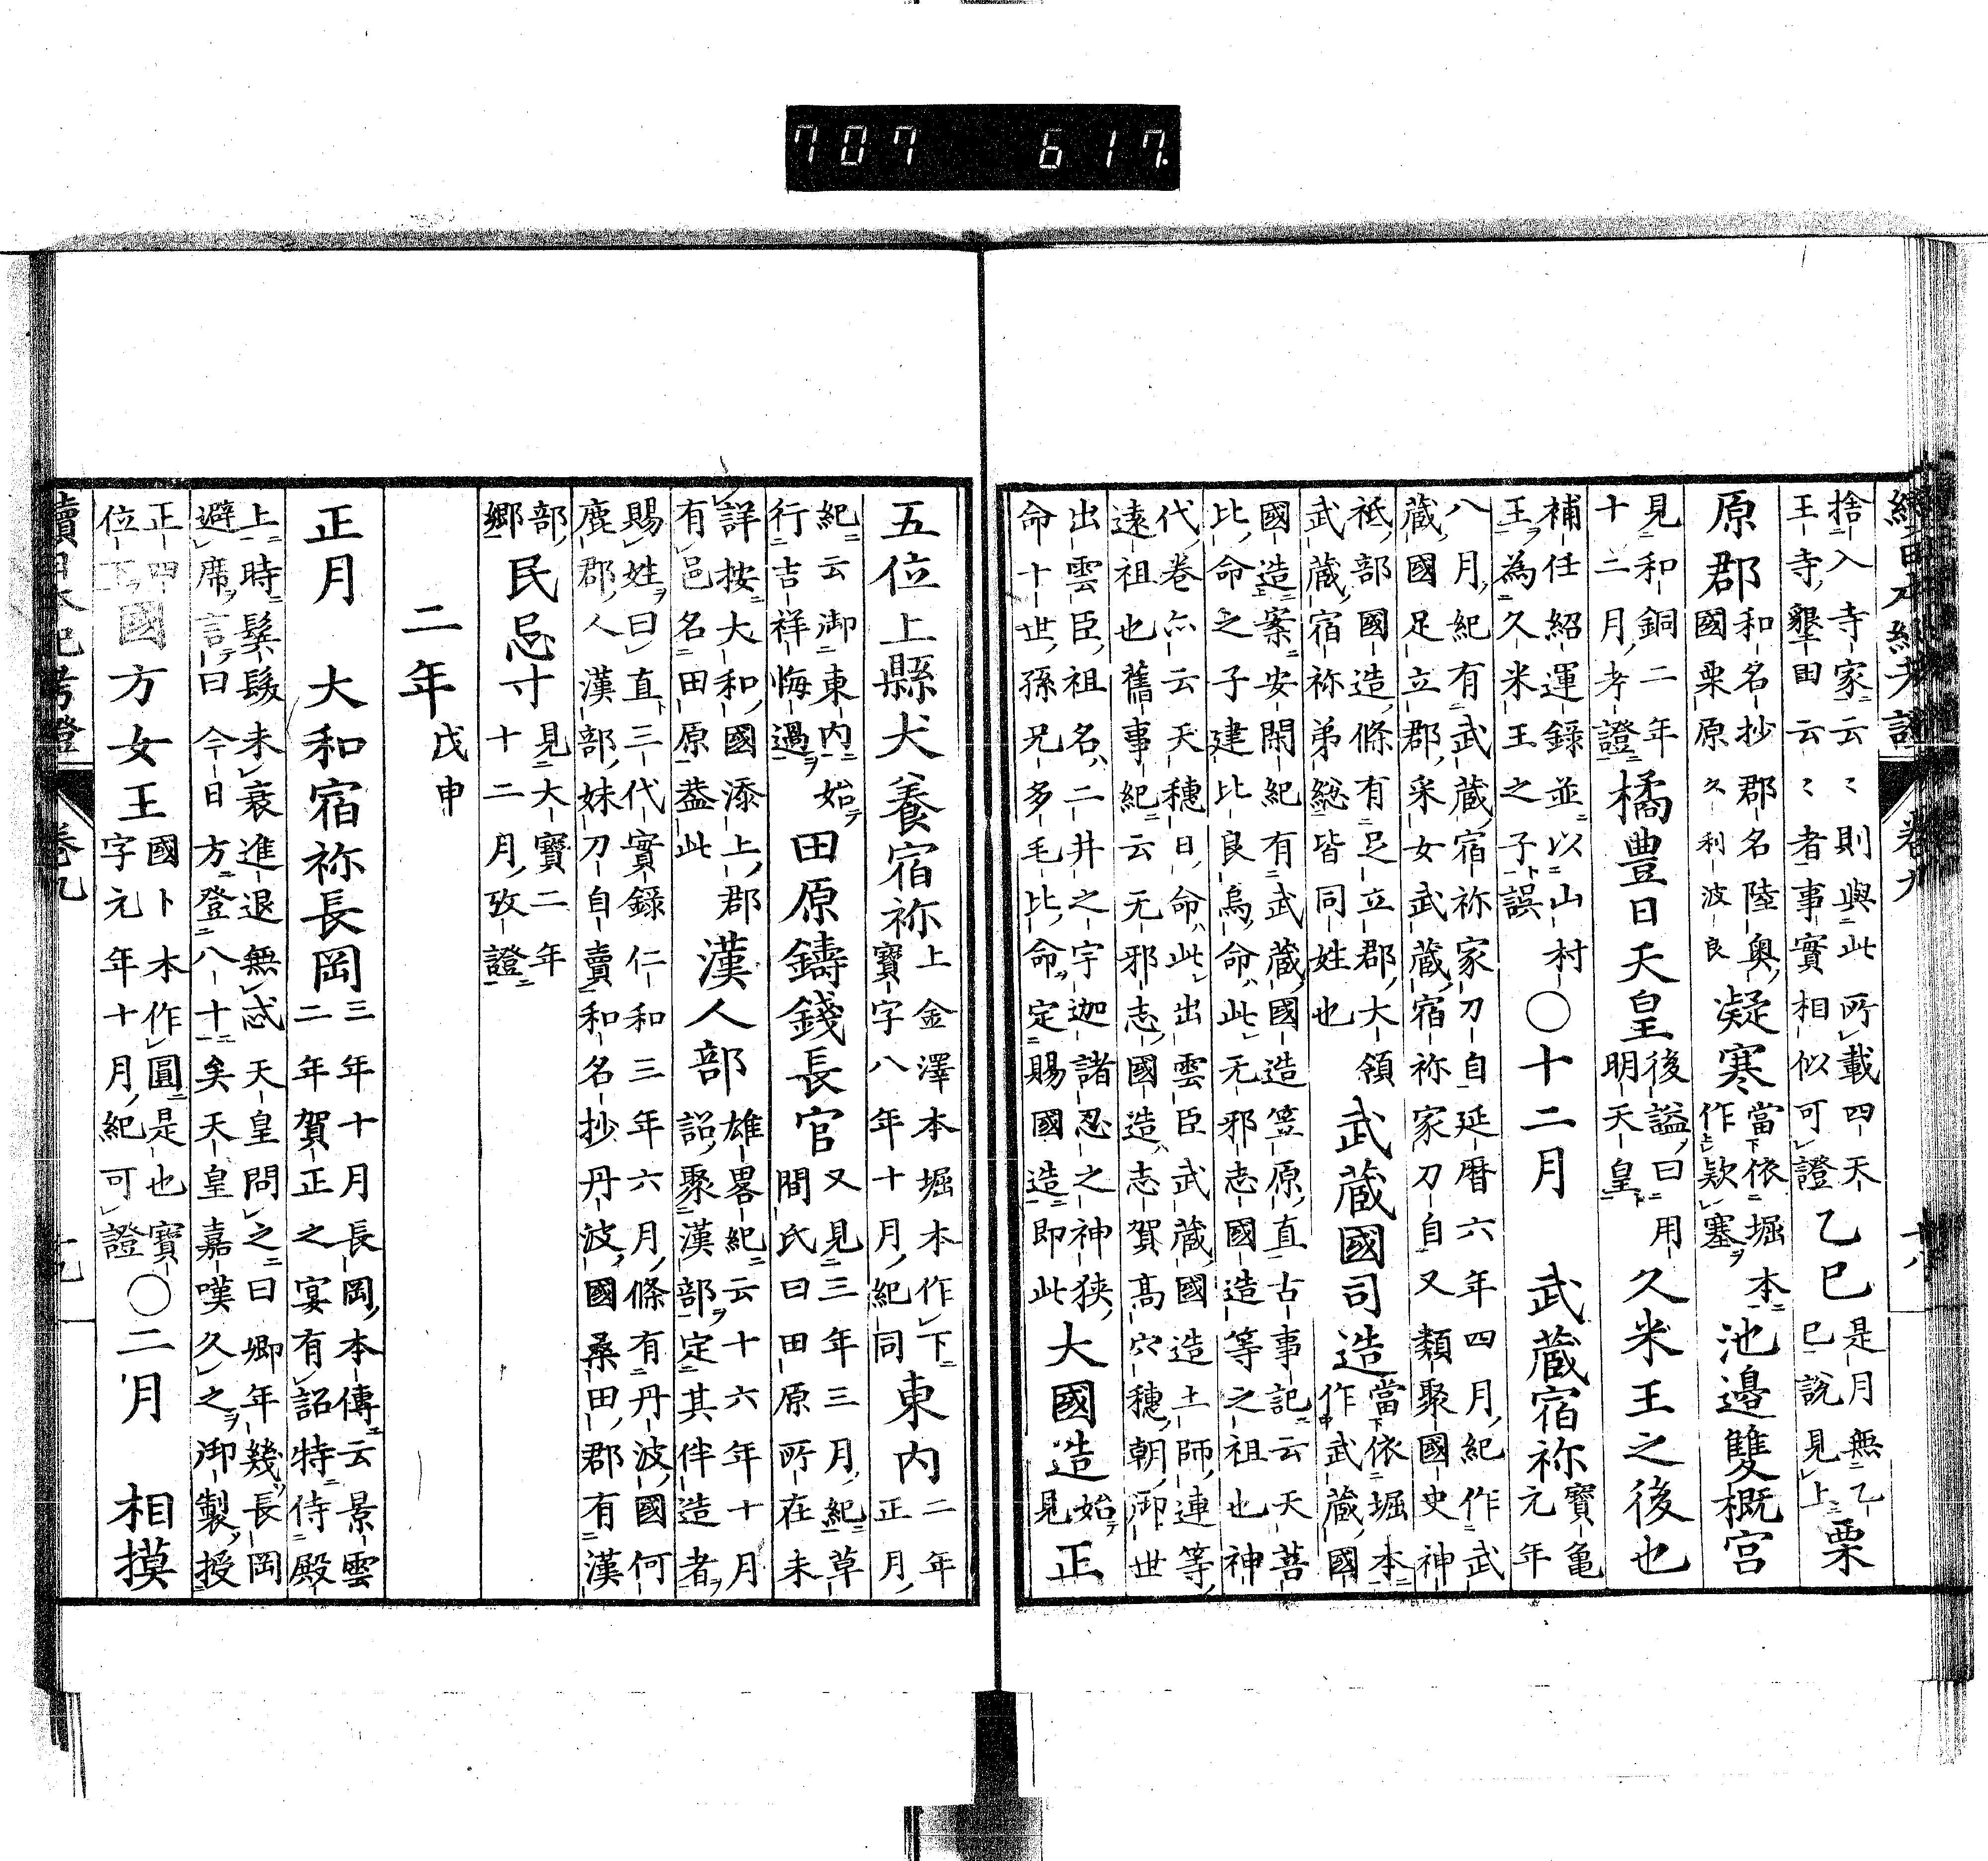 707 617.
續日本紀考證 卷九 十八
捨入寺家云々則與此所載四天
王寺墾田云々者事實相似可證
乙巳
是月無乙
巳說見上
栗
原郡
和名抄郡名陸奥
國栗原久利波良
凝寒
當依堀本
作欵塞
池邊雙槪宮
見和銅二年
十二月考證
橘豊日天皇
後謚曰用
明天皇
久米王之後也
補任紹運錄並以山村
王為久米王之子誤
〇十二月 武蔵宿祢
寶亀
元年
八月紀有武蔵宿祢家刀自延曆六年四月紀作武
蔵國足立郡采女武蔵宿祢家刀自又類聚國史神
祇部國造條有足立郡大領
武蔵宿祢弟総皆同姓也
武蔵國司造
當依堀本
作武蔵國
國造案安閑紀有武蔵國造笠原直古事記云天菩
比命之子建比良鳥命此无邪志國造等之祖也神
代卷亦云天穗日命此出雲臣武蔵國造土師連等
遠祖也舊事紀云无邪志國造志賀髙穴穗朝御世
出雲臣祖名二井之宇迦諸忍之神狹
命十世孫兄多毛比命定賜國造即此
大國造
始
見
正
五位上縣犬養宿祢
上金澤本堀本作下
寶字八年十月紀同
東内
二年
正月
紀云御東内始
行吉祥悔過
田原鑄錢長官
又見三年三月紀草
間氏曰田原所在未
詳按大和國添上郡
有邑名田原葢此
漢人部
雄畧紀云十六年十月
詔聚漢部定其伴造者
賜姓曰直三代實錄仁和三年六月條有丹波國何
鹿郡人漢部妹刀自賣和名抄丹波國桑田郡有漢
部
鄉
民忌寸
見大寶二年
十二月攷證
二年 戊申
正月 大和宿祢長岡
三年十月長岡本傳云景雲
二年賀正之宴有詔特侍殿
上時鬂髮未衰進退無忒天皇問之曰卿年幾長岡
避席言曰今日方登八十矣天皇嘉嘆久之御製授
正四
位下
國方女王
國卜本作圓是也寶
字元年十月紀可證
〇二月 相摸
續日本紀考證 卷九 十九